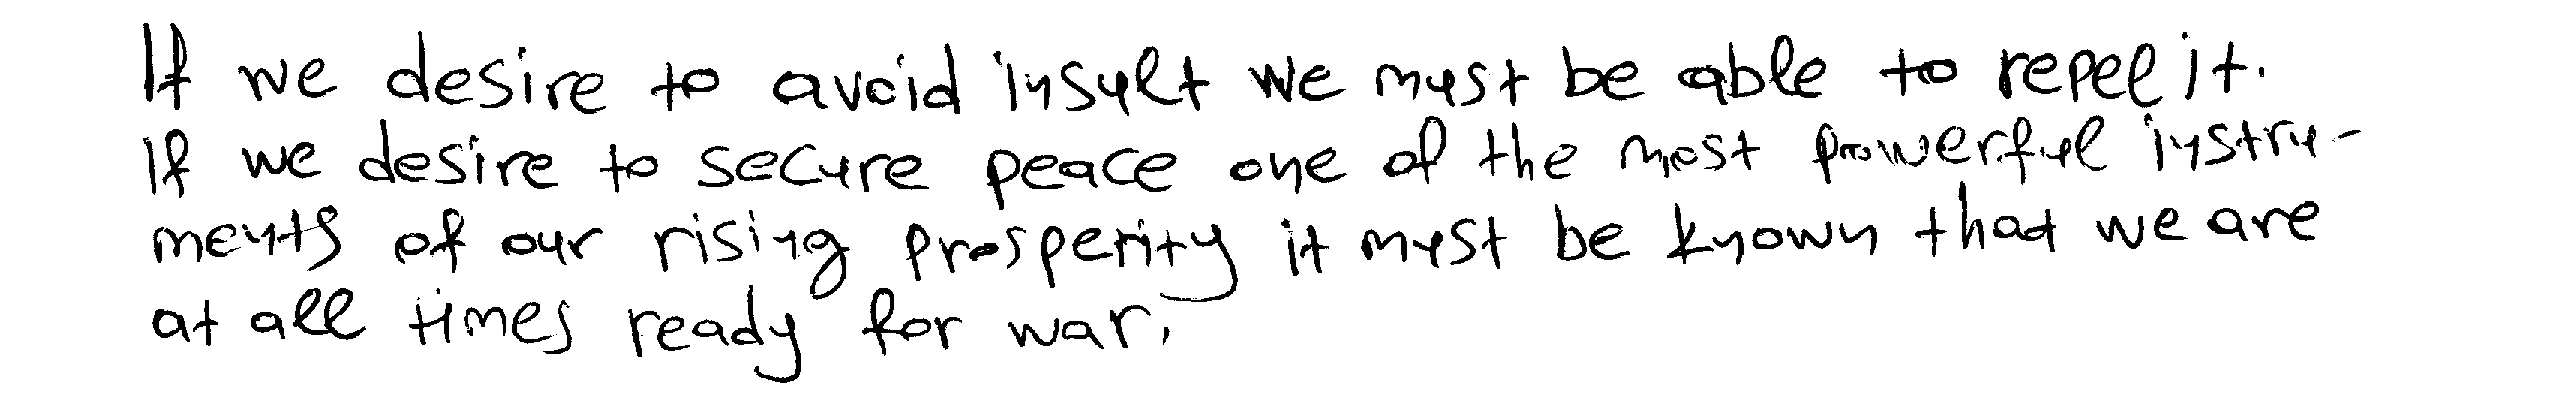 If we desire to avoid insult we must be able to repel it.
If we desire to secure peace one of the most powerful instru-
ments of our rising prosperity it must be known that we are
at all times ready for war.